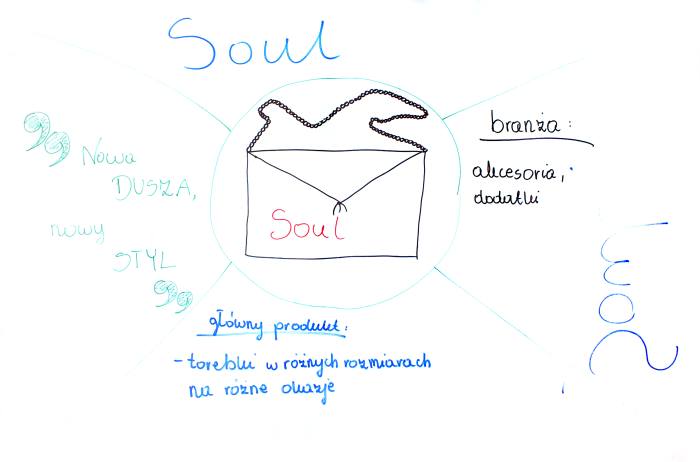 Soul
branża:
akcesoria,
dodatki
„ Nowa
DUSZA,
nowy
STYL
”
Soul
główny produkt:
- torebki w różnych rozmiarach
na różne okazje
Soul